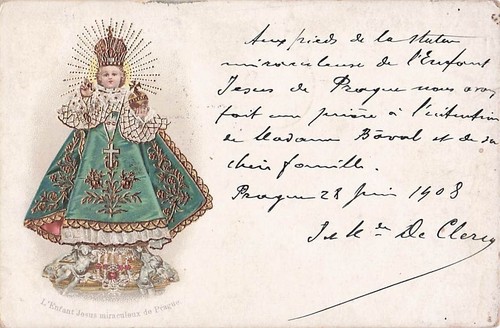 Aux pieds de la statue
miraculeuse de l'Enfant
Jesus de Prague nous avons
fait une prière à l'intention
de Madame Bôval et de sa
chère famille.
Prague 28 juin 1908
De Clercq
L'Enfant Jesus miraculeux de Prague.